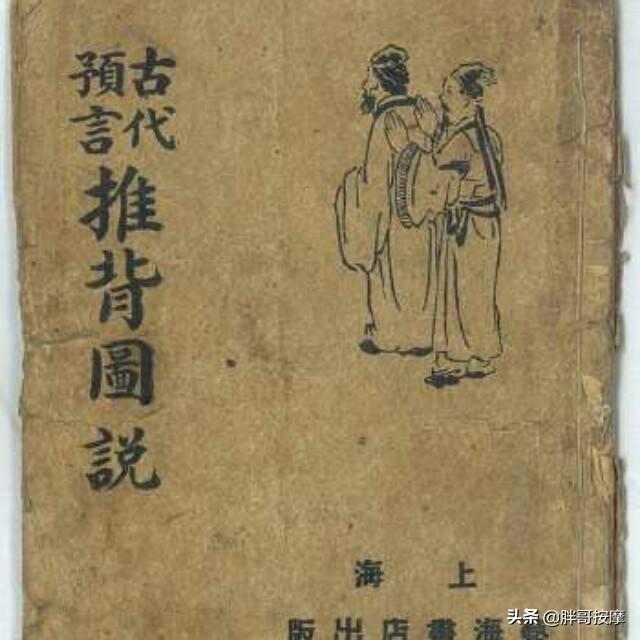 古代
預言
推背圖説
上海
海書店出版
头条 @胖哥按摩